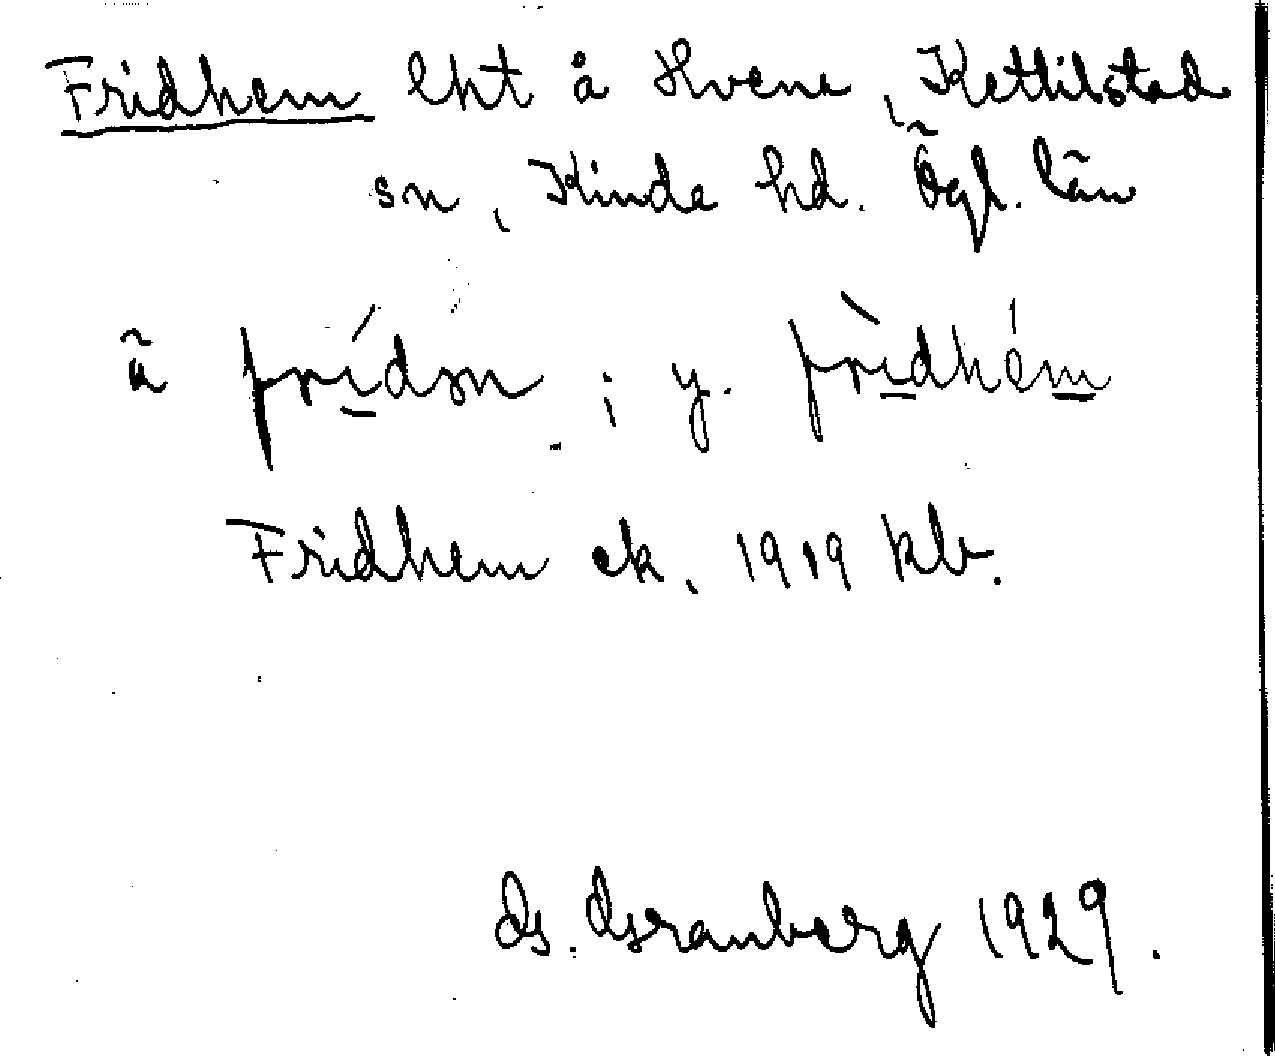 Fridhem lht å Hvena, Kettilstad
sn, Kinda hd. Ögl. län
ä frídm ; y. frìdhém
Fridhem ek. 1919 klb.
G. Granberg 1929.